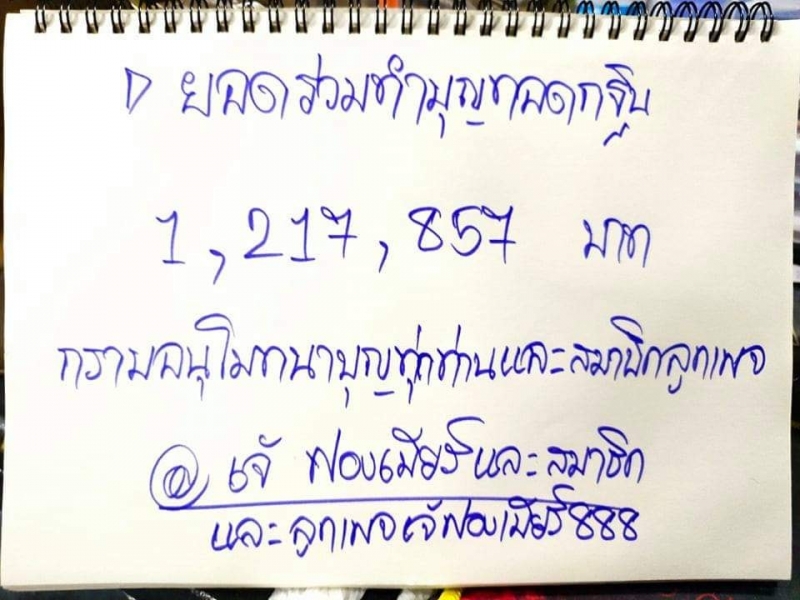 ยอดร่วมทำบุญทอดกฐิน
1,217,857 บาท
กราบอนุโมทนาบุญทุกท่านและสมาชิกลูกเพจ
@ เจ้ ฟองเบียร์และสมาชิก
และลูกเพจเจ้ฟองเบียร์888